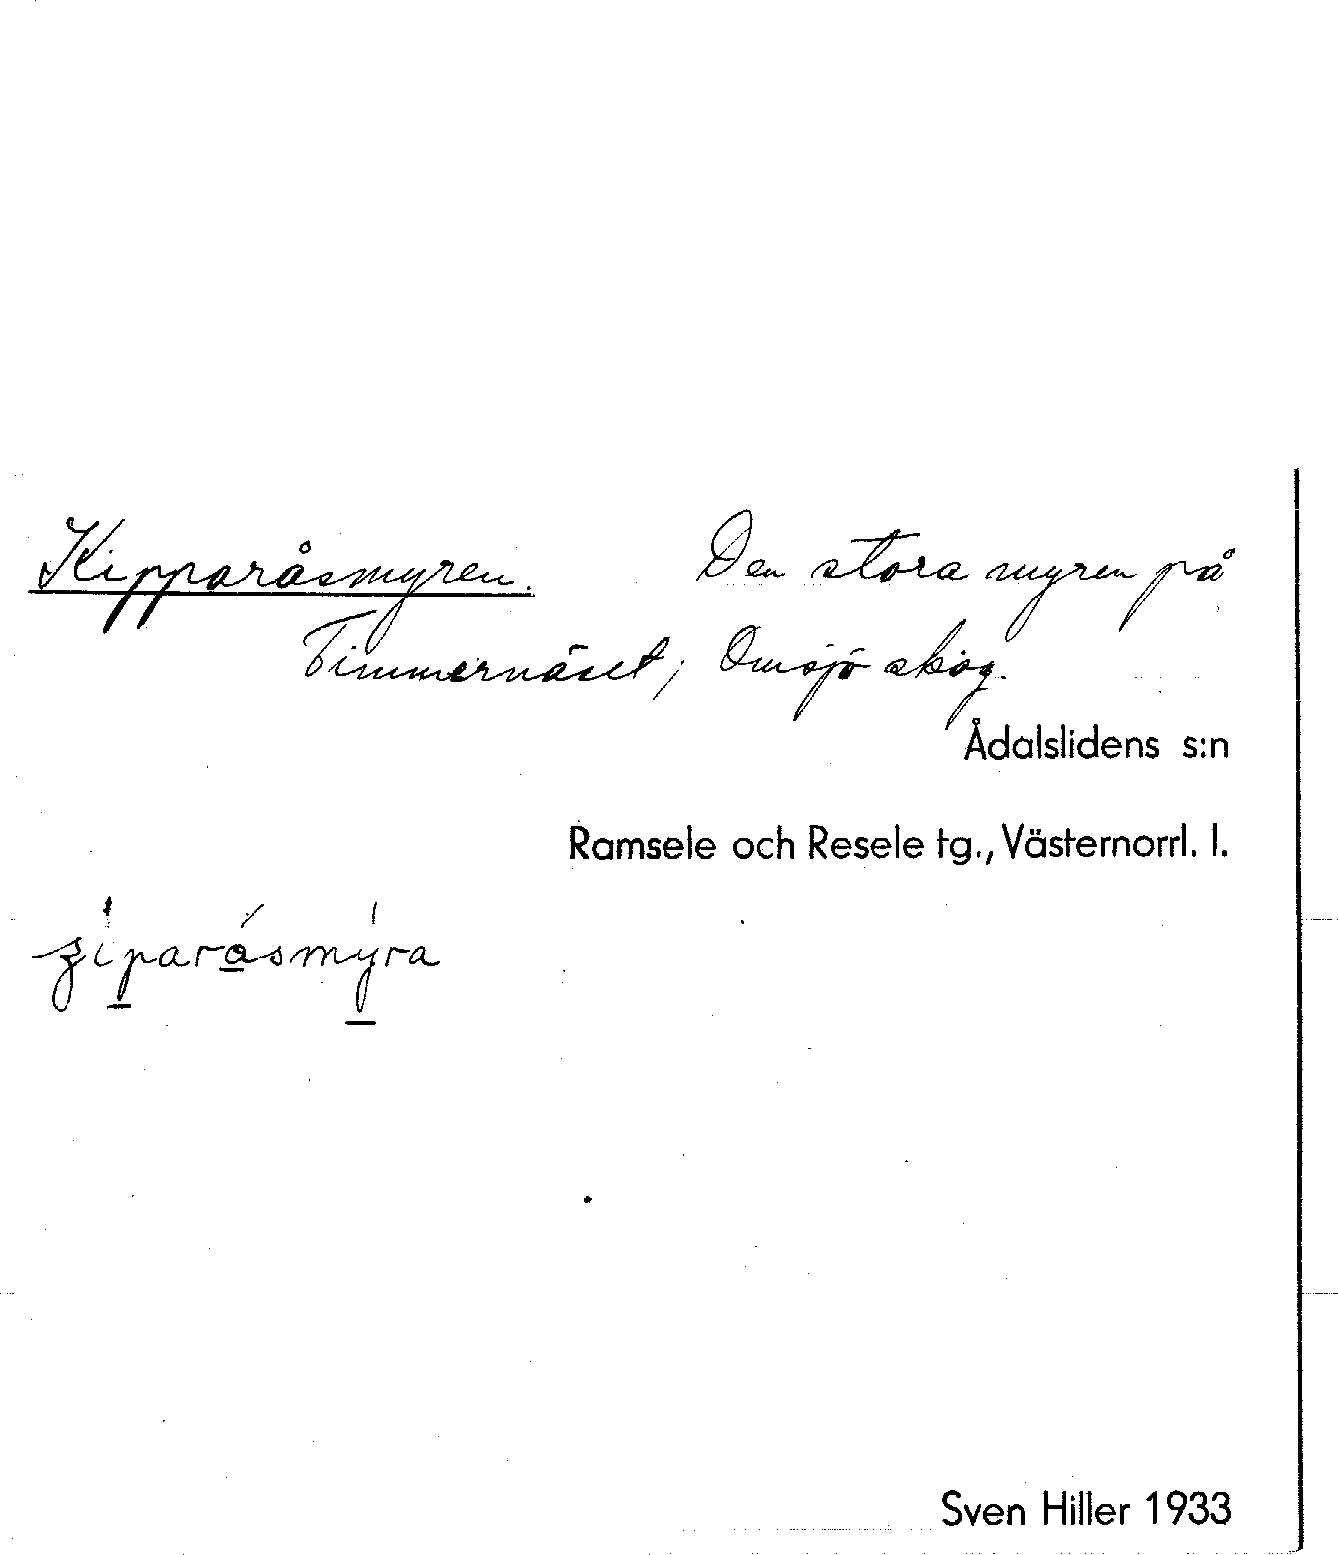 Kipparåsmyren. Den stora myren på
Timmernäset; Omsjö skog.
Ådalslidens s:n
Ramsele och Resele tg., Västernorrl. l.
ʒíparåsmýra
Sven Hiller 1933